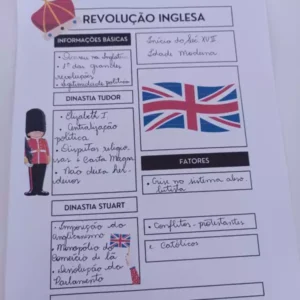 REVOLUÇÃO INGLESA
INFORMAÇÕES BÁSICAS
• Ocorreu na Inglaterra
• 1ª das grandes
revoluções
• Legitimidade política
Início do séc XVII
Idade Moderna
DINASTIA TUDOR
• Elizabeth I
• Centralização
política
• Disputas religio
sas → Carta Magna
• Não deixa her-
deiros
FATORES
• Crise no sistema abso
lutista
DINASTIA STUART
• Imposição do
anglicanismo
• Monopólio do
comércio de lã
• Dissolução do
Parlamento
• Conflitos - protestantes
e Católicos